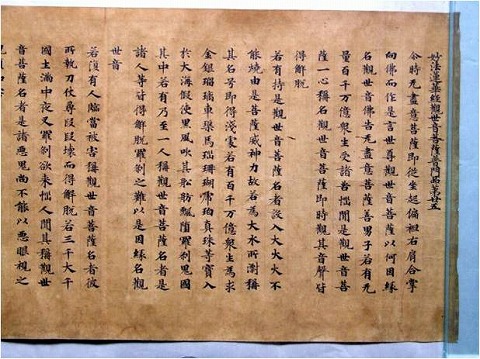 妙法蓮華經觀世音菩薩普門品第廿五
尒時无盡意菩薩即從坐起偏袒右肩合掌
向佛而作是言世尊觀世音菩薩以何因緣
名觀世音佛告无盡意菩薩善男子若有无
量百千万億衆生受諸苦惱聞是觀世音菩
薩一心稱名觀世音菩薩即時觀其音聲皆
得解脫
若有持是觀世音菩薩名者設入大火火不
能燒由是菩薩威神力故若爲大水所漂稱
其名号即得淺處若有百千万億衆生爲求
金銀瑠璃車磲馬瑙珊瑚虎珀真珠等寶入
於大海假使黑風吹其舩舫飄墮羅刹鬼國
其中若有乃至一人稱觀世音菩薩名者是
諸人等皆得解脫羅刹之難以是因緣名觀
世音
若復有人臨當被害稱觀世音菩薩名者彼
所執刀杖尋段段壞而得解脫若三千大千
國土滿中夜叉羅刹欲來惱人聞其稱觀世
音菩薩名者是諸惡鬼尚不能以惡眼視之